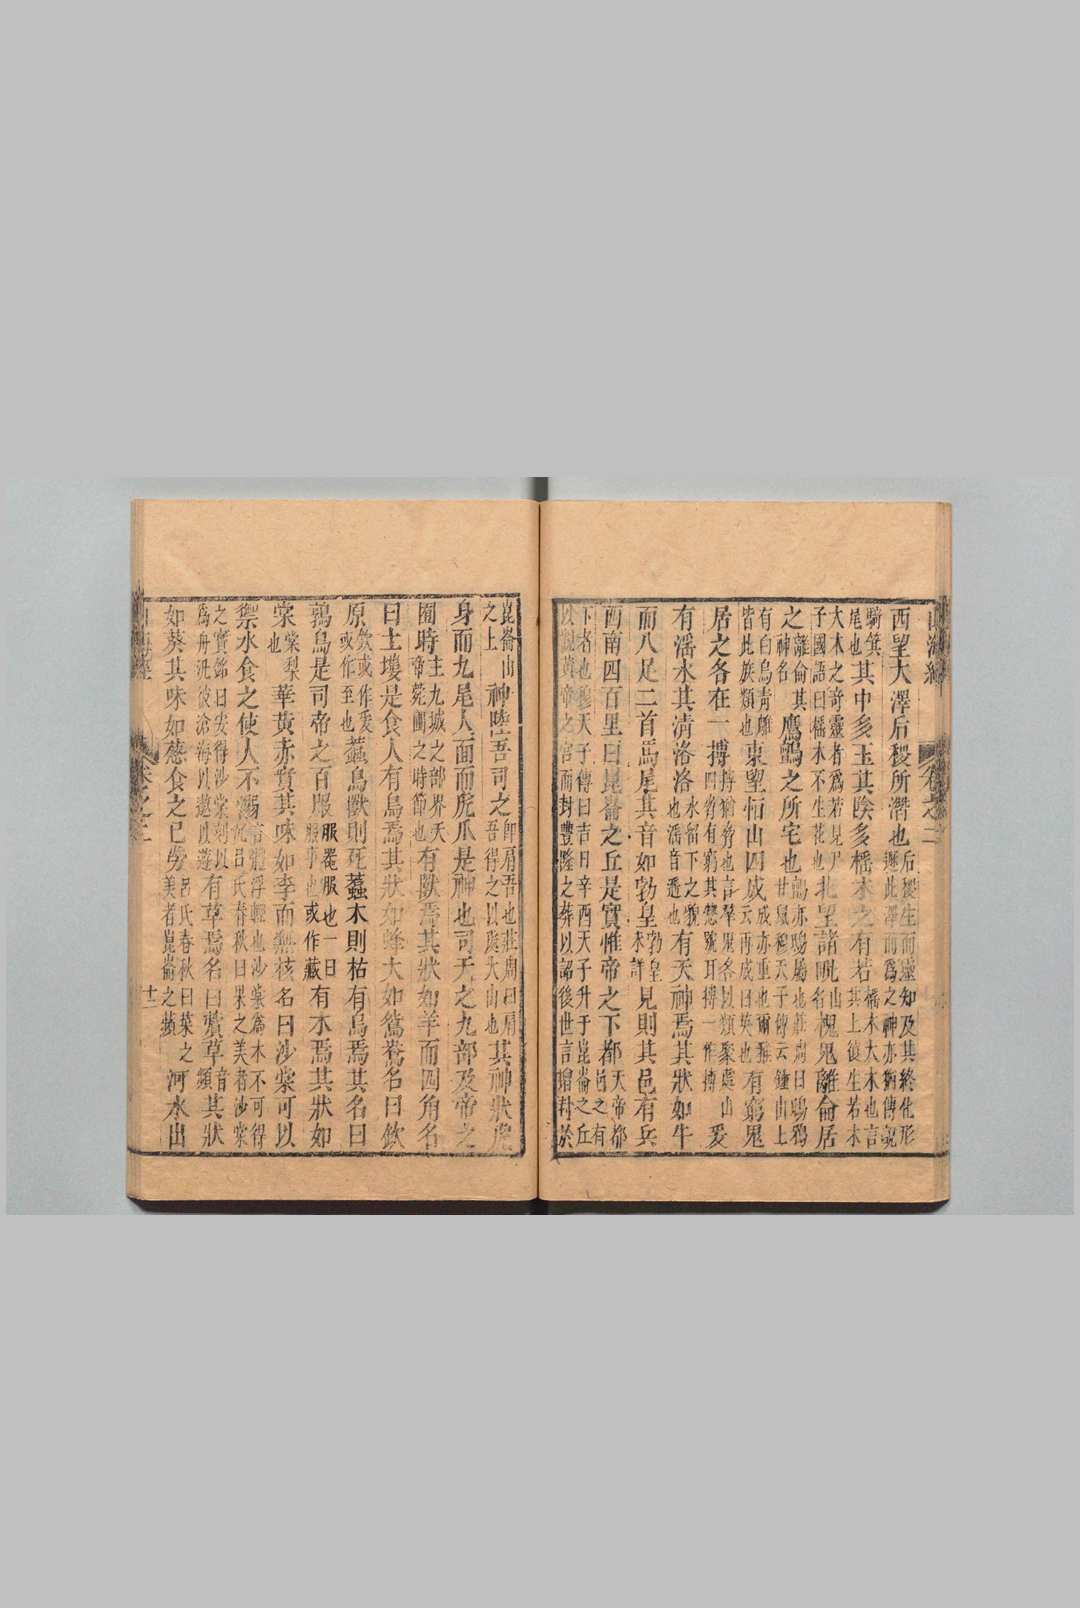 山海經 卷之二
西望大澤后稷所潛也后稷生而靈知及其終化形遯此澤而爲之神亦猶傅說
騎箕尾也其中多玉其陰多榣木之有若榣木大木也言其上復生若木
大木之奇靈者爲若見尸子國語曰榣木不生花也北望諸毗山名槐鬼離侖居
之離侖其神名鷹鸇之所宅也鸇亦鴟屬也莊周曰鴟鴉甘鼠穆天子傳云鍾山上
有白鳥青雕皆此族類也東望恒山四成成亦重也爾雅云再成曰英也有窮鬼
居之各在一搏搏猶脅也言羣鬼各以類聚處山四脅有窮其總號耳搏一作摶爰
有滛水其清洛洛水留下之貌也滛音遥也有天神焉其狀如牛
而八足二首馬尾其音如勃皇勃皇未詳見則其邑有兵
西南四百里曰昆侖之丘是實惟帝之下都天帝都邑之有
下者也穆天子傳曰吉日辛酉天子升于昆侖之丘
以觀黄帝之宮而封豐隆之葬以詔後世言增封於
崑崙山之上神陸吾司之即肩吾也莊周曰肩吾得之以處大山也其神狀虎
身而九尾人面而虎爪是神也司天之九部及帝之
囿時主九域之部界天帝苑囿之時節也有獸焉其狀如羊而四角名
曰土螻是食人有鳥焉其狀如蜂大如鴛鴦名曰欽
原欽或作爰或作至也蠚鳥獸則死蠚木則枯有鳥焉其名曰
鶉鳥是司帝之百服服器服也一曰服事也或作藏有木焉其狀如
棠棠梨也華黄赤實其味如李而無核名曰沙棠可以
禦水食之使人不溺言體浮輕也沙棠爲木不可得沉呂氏春秋曰果之美者沙棠
之實銘曰安得沙棠刻以爲舟汎彼滄海以遨以遊有草焉名曰薲草音頻其狀
如葵其味如葱食之已勞呂氏春秋曰菜之美者崑崙之蘋河水出
山海經 卷之二 十二